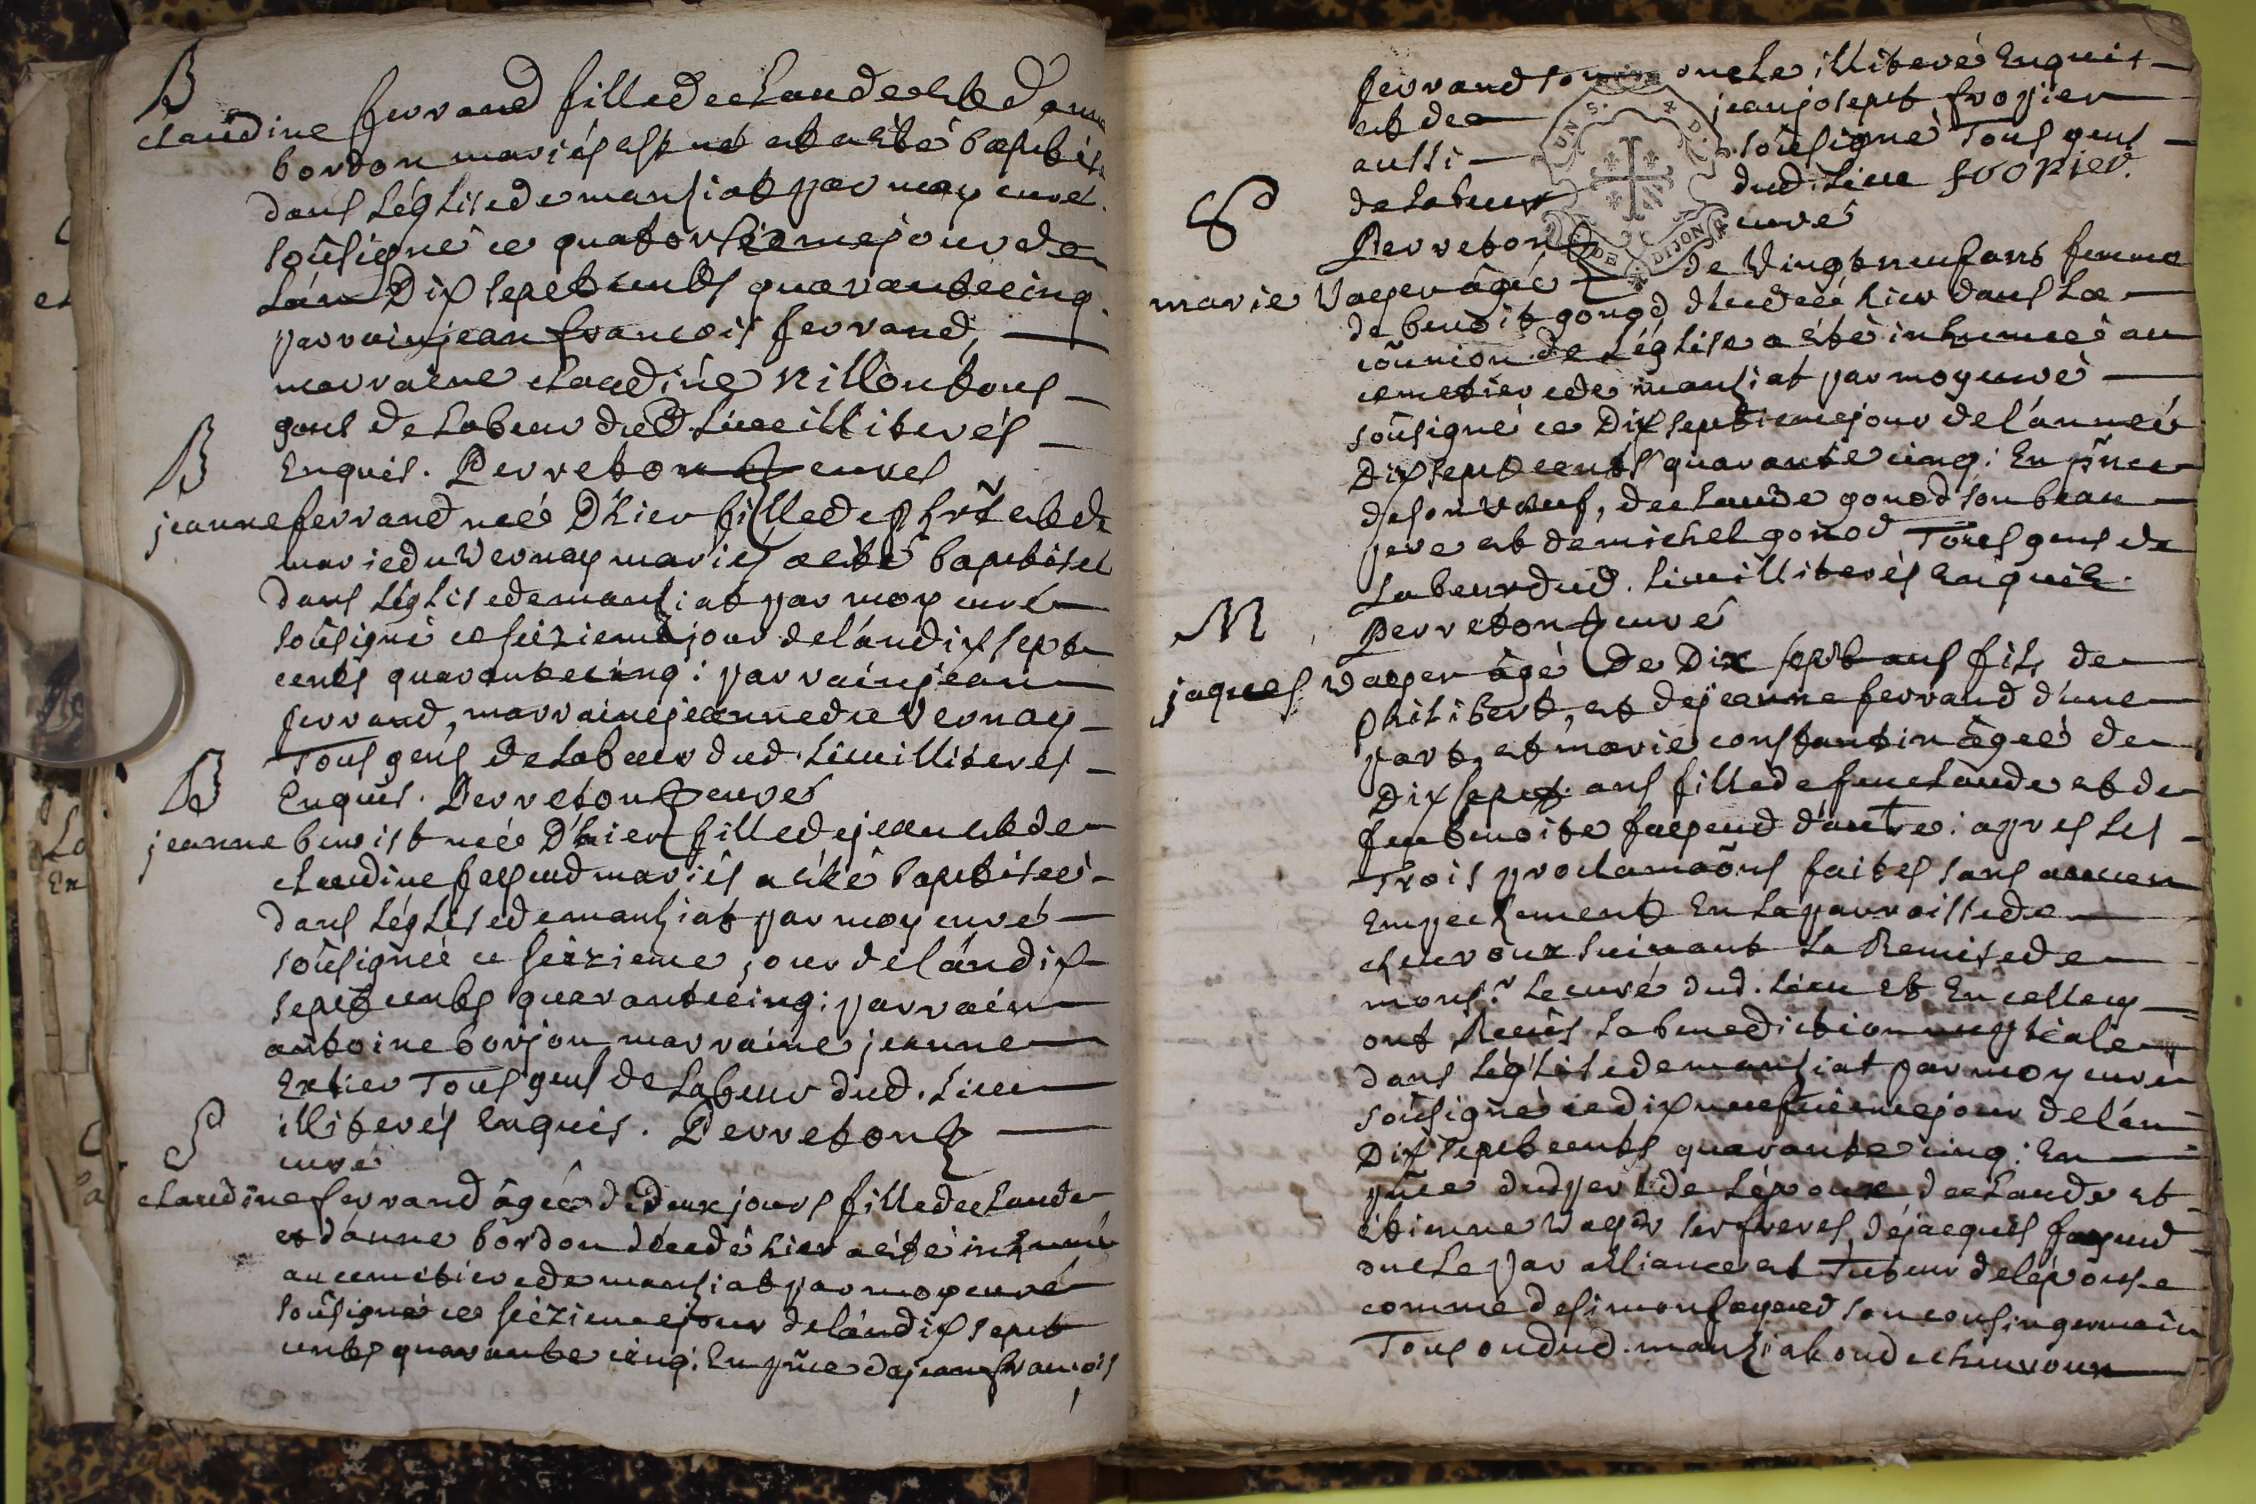 B
claudine ferrand fille de claude et d'anne
bordon mariés est né et a été baptisée
dans L'église de manziat par moy curé
soûsigné ce quatorzièmejour de
L'án Dix sept cents quarante cinq.
parrain jean francois ferrand,
marraine claudine Nillon tous
gens de Labeur dud. Lieu illiterés
Enquis. Perreton curés
B
jeanne ferrand neé D'hier fille de phrt et de
marie du Vernay mariés a été baptisée
dans L'églis e de manziat par moy curé
soûsigné ce seizieme jour de l'an dix sept
cents quarante cinq: parrain jean
ferrand, marraine jeanne du Vernay
Tous gens de Labeur dud. Lieu illiterés
Enquis. Perreton curé
B
jeanne benoist neé D'hier fille de jean et de
claudine faspend mariés a été baptiseé
dans L'églis e de manziat par moy curé
soûsigneé ce seizieme jour de l'an dix
sept cents quarante cinq: parrain
antoine borjon marraine jeanne
Extier Tous gens de Labeur dud. Lieu
illiterés Enquis. Perreton
curé
S
claudine ferrand âgeé de Deux jours fille de claude
et d'anne bordon décedé hier a été inhumé
au cemetiere de manziat par moy curé
soûsigné ce seizieme jour de l'an dix sept
cents quarante cinq: En pñce de jean francois
ferrand son oncle illiteré Enquis
et de jean josept fropier
aussi soûsigné Tous gens
de Labeur dud. Lieu froPier.
Perreton curé
S
marie Vasper âgeé de Vingt neuf ans femme
de benoit gonod décedeé hier dans La
coñunion de L'église a été inhumeé au
cemetiere de manziat par moy curé
soûsigné ce Dix septiemejour de l'anneé
Dix sept cents quarante cinq: En pñce
de son veuf, de claude gonod son beau
pere et de michel gonod Tous gens de
Labeur dud. Lieu illiterés Enquis.
Perreton curé
M
jaques Vasper âgé de Dix sept ans fils de
philibert, et de jeanne ferrand d'une
part, et marie constantin âgeé de
Dix sept ans fille de feu claude et de
feu benoite faspend d'autre: apres les
trois proclamaõns faites sans aucun
Empechement En la parroisse de
chevroux suivant La Remise de
mons.r Le curé dud. Lieu et En celle cy
ont Receûs La benediction nuptiale
dans L'églis e de manziat par moy curé
soûsigné ce dix neuf uiemejour de l'an
Dix sept cents quarante cinq: En
pñce dud pere de L'époux de claude et
étienne Vasper ses freres, de jacques faspend
oncle par alliance et Tuteur de l'épouse
comme de simon faspend son cousin germain
Tous ou dud. manziat ou de chevroux
UN S. * D.
DE * DIJON